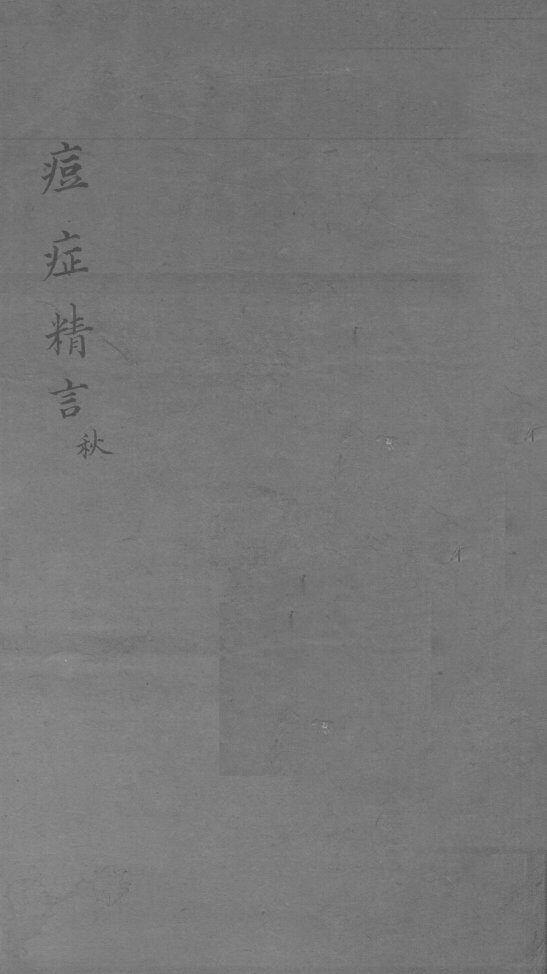 痘症精言
秋